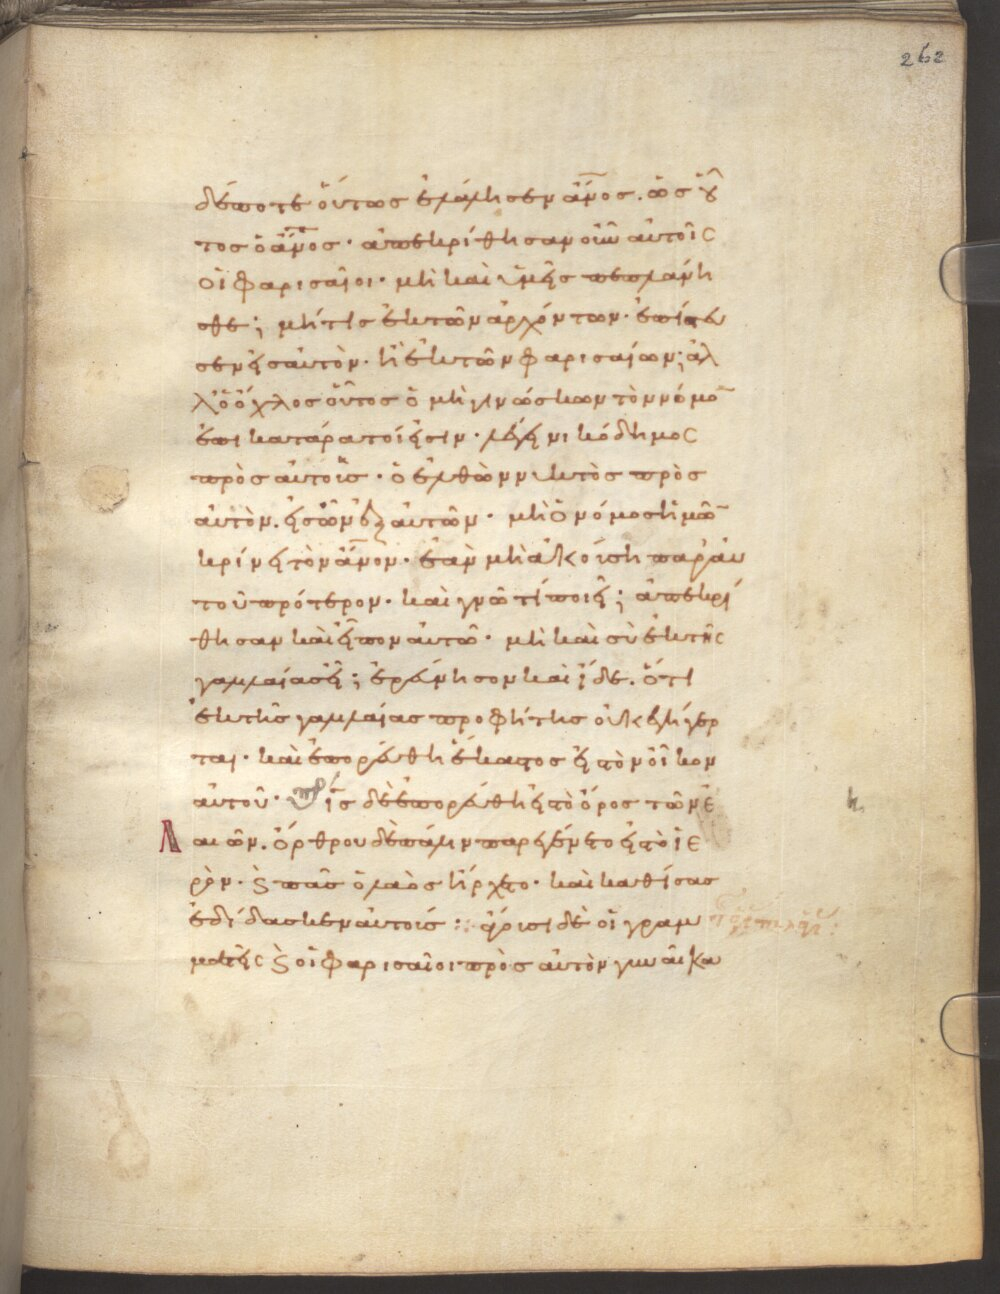 262
δέποτε οὕτως ἐλάλησεν ἄνος. ὡς οὗ
τος ὁ ἄνος· ἀπεκρίθησαν οὖν αὐτοῖς
οἱ φαρισαῖοι· μὴ καὶ ὑμεῖς πεπλάνη
σθε; μή τις ἐκ τῶν ἀρχόντων· ἐπίστευ
σεν εἰς αὐτὸν· ἢ ἐκ τῶν φαρισαίων; ἀλ
λ' ὁ ὄχλος οὗτος ὁ μὴ γινώσκων τὸν νόμο̅
ἐπικατάρατοί εἰσιν· λέγει νικόδημος
πρὸς αὐτοὺς· ὁ ἐλθὼν νυκτὸς πρὸς
αὐτὸν. εἷς ὢν ἐξ αὐτῶν· μὴ ὁ νόμος ἡμῶ̅
κρίνει τὸν ἄνον· ἐὰν μὴ ἀκούσῃ παρ' αὐ
τοῦ πρότερον· καὶ γνῶ τί ποιεῖ; ἀπεκρί
θησαν καὶ εἶπον αὐτῶ· μὴ καὶ σὺ ἐκ τῆς
γαλιλαίας εἶ; ἐρεύνησον καὶ ἴδε. ὅτι
ἐκ τῆς γαλιλαίας προφήτης οὐκ ἐγήγερ
ται· καὶ ἐπορεύθη ἕκαστος εἰς τὸν οἶκον
αὐτοῦ· ἰς δὲ ἐπορεύθη εἰς τὸ ὄρος τῶν ἐ
λαιῶν. ὄρθρου δὲ πάλιν παρεγένετο εἰς τὸ ἱε
ρὸν· ϗ πᾶς ὁ λαὸς ἤρχετο· καὶ καθίσας
ἐδίδασκεν αὐτούς: φέρουσι δὲ οἱ γραμ
ματεῖς ϗ οἱ φαρισαῖοι πρὸς αὐτὸν γυναῖκα